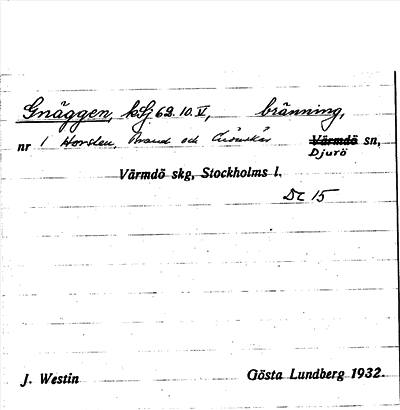 Gnäggen, kSj. 62.10.V, bränning,
nr 1 Horsten, och Värmdö sn,
Djurö
Värmdö skg, Stockholms l.
Dc 15
J. Westin Gösta Lundberg 1932.